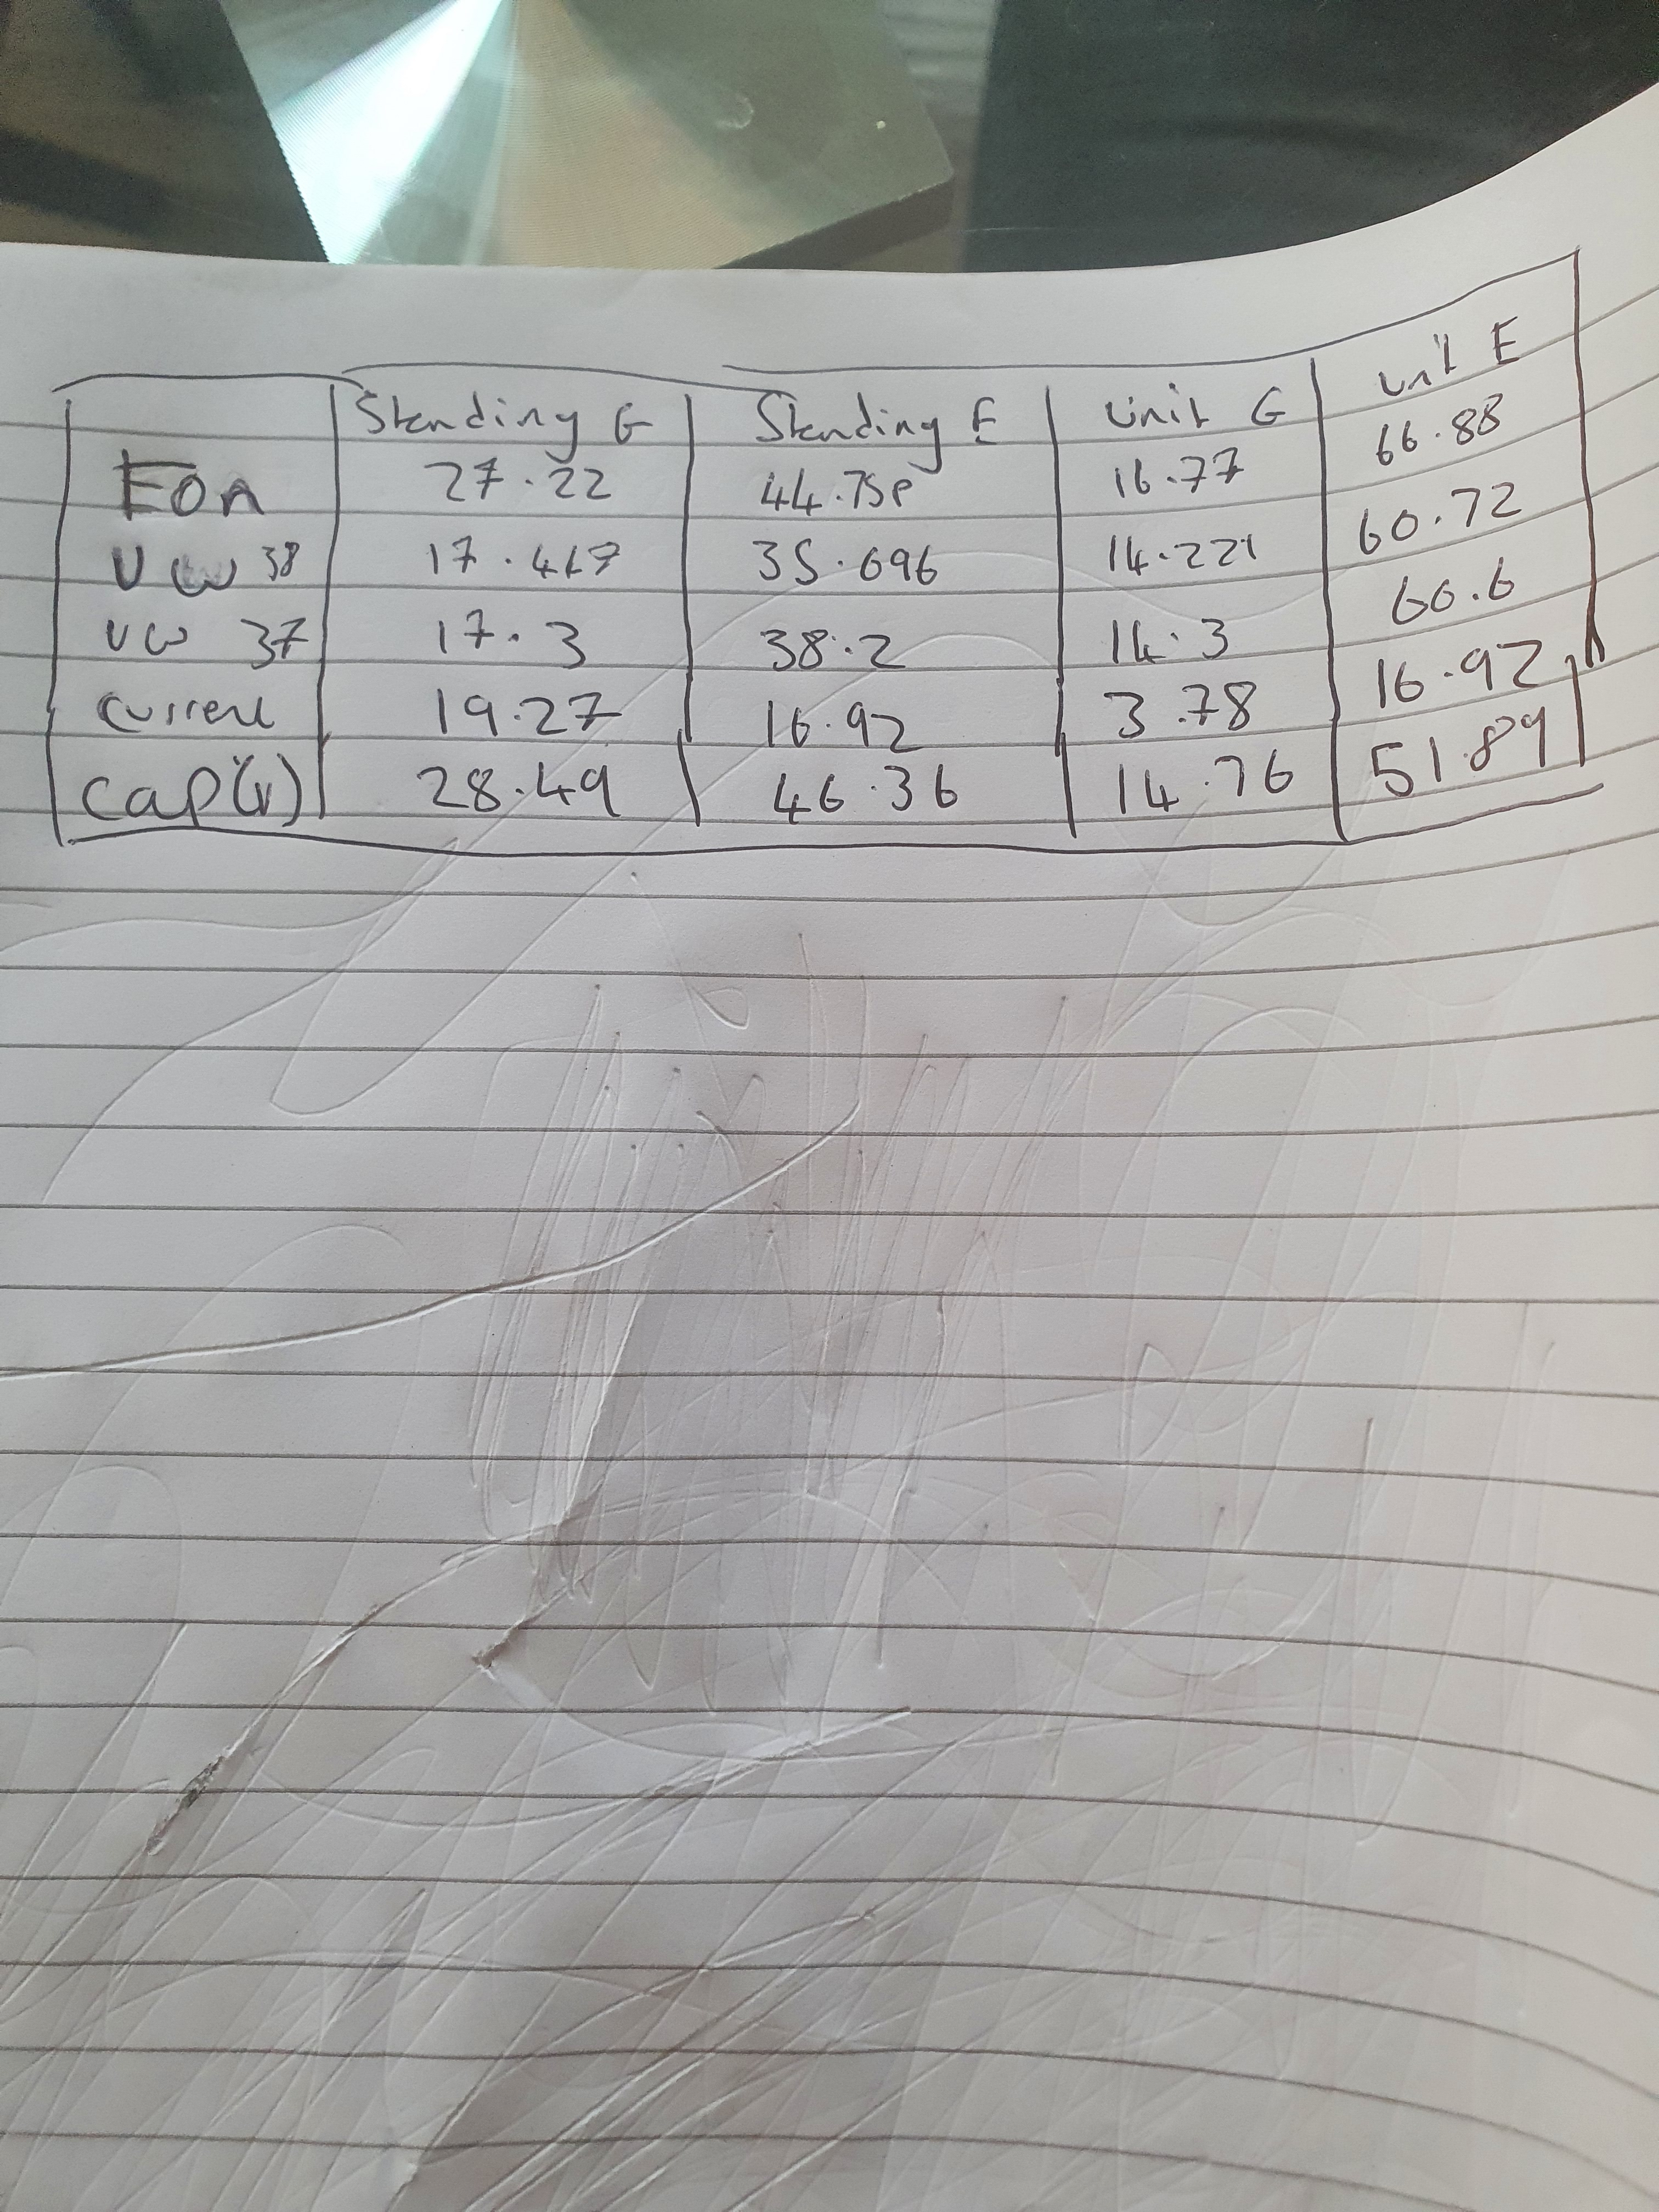 Standing G Standing E Unit G Unit E
Eon 27.22 44.75p 16.77 66.88
UW 38 17.467 35.696 14.221 60.72
UW 37 17.3 38.2 14.3 60.6
Current 19.27 16.92 3.78 16.92
Cap(v) 28.49 46.36 14.76 51.89